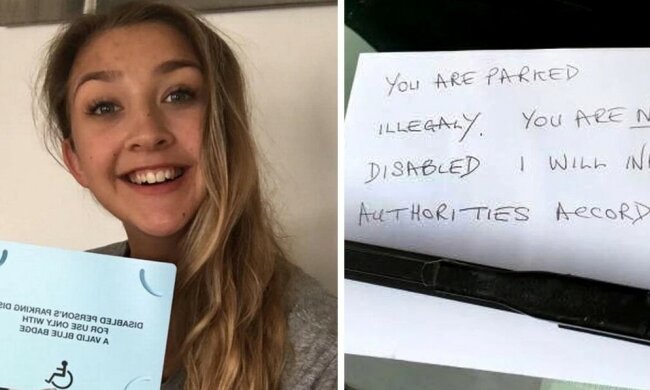 DISABLED PERSON'S PARKING DIS
FOR USE ONLY WITH
A VALID BLUE BADGE
YOU ARE PARKED
ILLEGALY. YOU ARE N
DISABLED I WILL IN
AUTHORITIES ACCORD